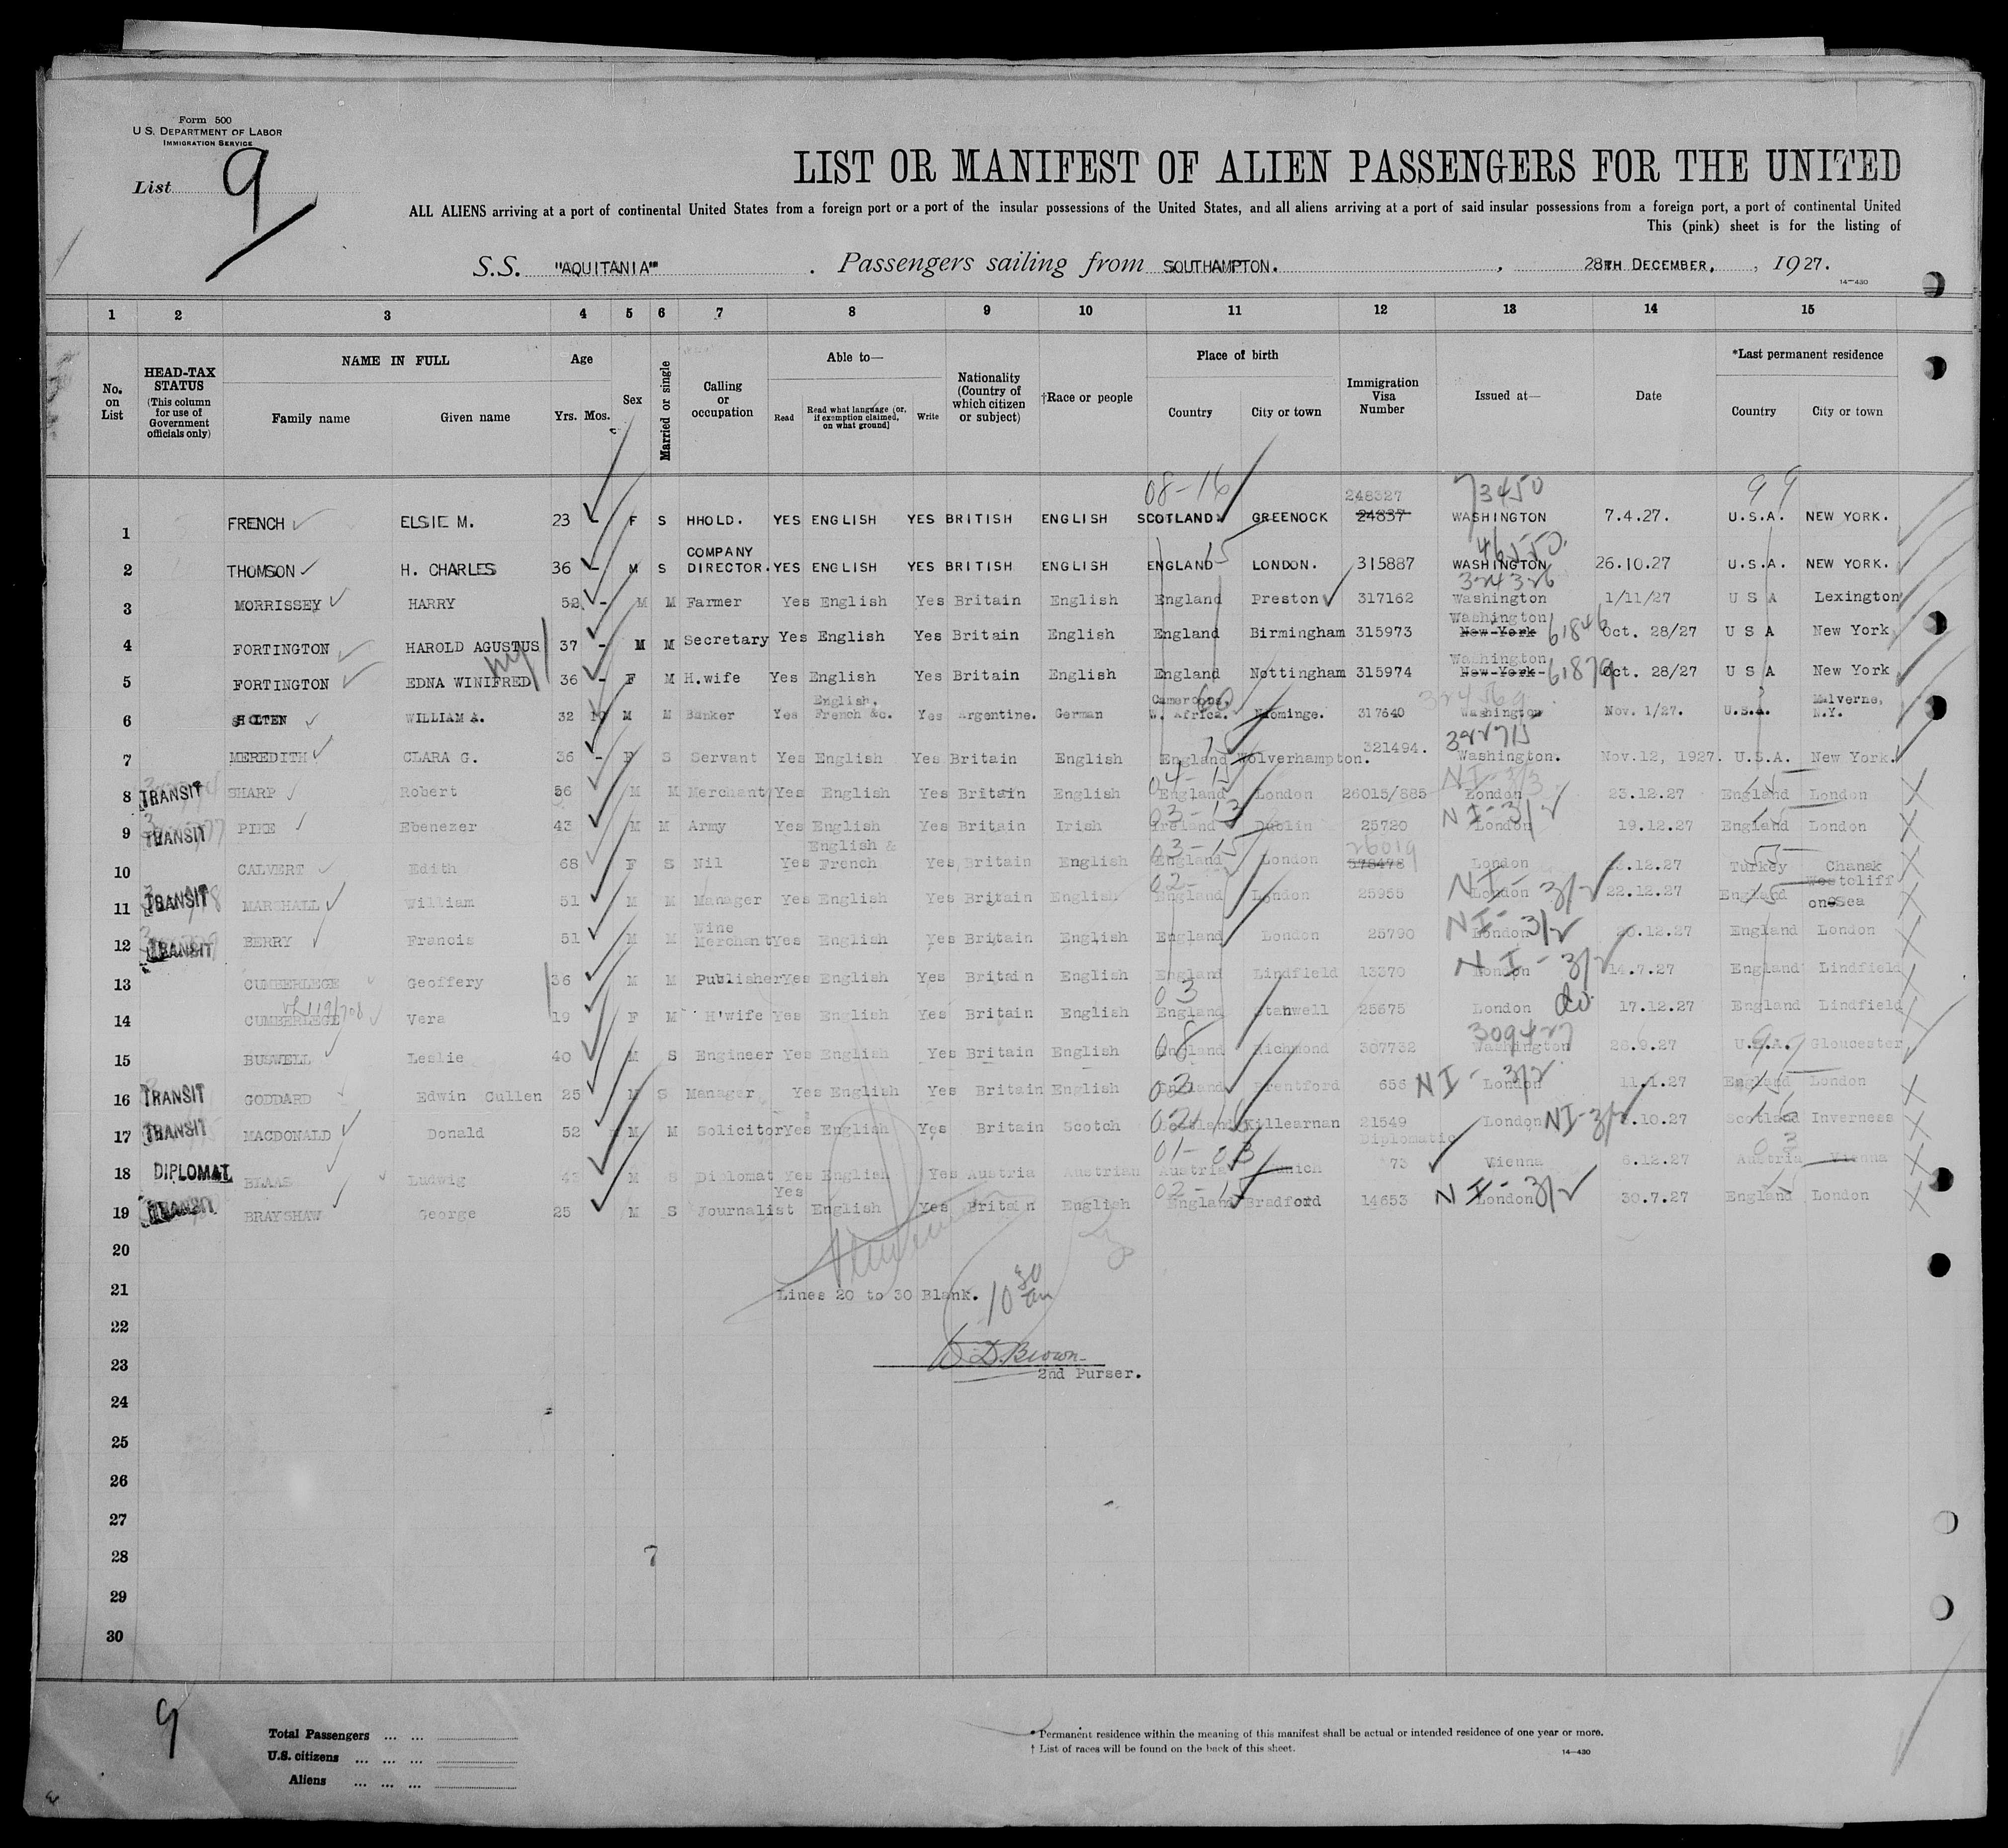 Form 500
U.S. DEPARTMENT OF LABOR
IMMIGRATION SERVICE
List 9
LIST OR MANIFEST OF ALIEN PASSENGERS FOR THE UNITED
ALL ALIENS arriving at a port of continental United States from a foreign port or a port of the insular possessions of the United States, and all aliens arriving at a port of said insular possessions from a foreign port, a port of continental United
This (pink) sheet is for the listing of
S.S. "AQUITANIA" . Passengers sailing from SOUTHAMPTON. , 28TH DECEMBER, , 1927.
14—430
1 2 3 4 5 6 7 8 9 10 11 12 13 14 15
No. on List
HEAD-TAX STATUS (This column for use of Government officials only)
NAME IN FULL
Family name Given name
Age
Yrs. Mos.
Sex
Married or single
Calling or occupation
Able to—
Read Read what language (or, if exemption claimed, on what ground) Write
Nationality (Country of which citizen or subject)
†Race or people
Place of birth
Country City or town
Immigration Visa Number
Issued at—
Date
*Last permanent residence
Country City or town
08-16 248327 73450 99
1 FRENCH ELSIE M. 23 - F S HHOLD. YES ENGLISH YES BRITISH ENGLISH SCOTLAND GREENOCK 24837 WASHINGTON 7.4.27. U.S.A. NEW YORK.
15 46550
2 THOMSON H. CHARLES 36 - M S COMPANY DIRECTOR. YES ENGLISH YES BRITISH ENGLISH ENGLAND LONDON. 315887 WASHINGTON 26.10.27 U.S.A. NEW YORK.
324326
3 MORRISSEY HARRY 52 - M M Farmer Yes English Yes Britain English England Preston 317162 Washington 1/11/27 U S A Lexington
4 FORTINGTON HAROLD AGUSTUS 37 - M M Secretary Yes English Yes Britain English England Birmingham 315973 Washington New York 61846 Oct. 28/27 U S A New York
5 FORTINGTON EDNA WINIFRED 36 - F M H.wife Yes English Yes Britain English England Nottingham 315974 Washington New York 61879 Oct. 28/27 U S A New York
6 HOLTEN WILLIAM A. 32 10 M M Banker Yes English, French &c. Yes Argentine. German Cameroons, W. Africa. 60 317640 Washington Nov. 1/27. U.S.A. Malverne, N.Y.
322715
7 MEREDITH CLARA G. 36 - F S Servant Yes English Yes Britain English England Wolverhampton. 321494. Washington. Nov.12, 1927. U.S.A. New York.
04-15 NI-3/3 15
8 TRANSIT SHARP Robert 56 M M Merchant Yes English Yes Britain English England London 26015/885 London 23.12.27 England London
03-13 NI-3/2 15
9 TRANSIT PIKE Ebenezer 43 M M Army Yes English Yes Britain Irish Ireland Dublin 25720 London 19.12.27 England London
03-15 26019
10 CALVERT Edith 68 F S Nil Yes English & French Yes Britain English England London 378478 London .12.27 Turkey Chanak
02- NI- 3/2 15
11 TRANSIT MARSHALL William 51 M M Manager Yes English Yes Britain English England London 25955 London 22.12.27 England Westcliff on Sea
NI- 3/2
12 TRANSIT BERRY Francis 51 M M Wine Merchant Yes English Yes Britain English England London 25790 London 20.12.27 England London
NI-3/2
13 CUMBERLEGE Geoffery 36 M M Publisher Yes English Yes Britain English England Lindfield 13370 London 14.7.27 England Lindfield
03 do.
14 CUMBERLEGE Vera 19 F M H'wife Yes English Yes Britain English England Stanwell 25675 London 17.12.27 England Lindfield
08 309427 99
15 BUSWELL Leslie 40 M S Engineer Yes English Yes Britain English England Richmond 307732 Washington 26.9.27 U.S.A. Gloucester
02 NI-3/2 15
16 TRANSIT GODDARD Edwin Cullen 25 M S Manager Yes English Yes Britain English England Brentford 656 London 11.1.27 England London
02-16 NI-3/2 16
17 TRANSIT MACDONALD Donald 52 M M Solicitor Yes English Yes Britain Scotch Scotland Killearnan 21549 London .10.27 Scotland Inverness
01-03 Diplomatic 03
18 DIPLOMAT BLAAS Ludwig 43 M S Diplomat Yes English Yes Austria Austrian Austria 73 Vienna 6.12.27 Austria Vienna
02-15 NI-3/2 15
19 TRANSIT BRAYSHAW George 25 M S Journalist Yes English Yes Britain English England Bradford 14653 London 30.7.27 England London
20
21 Lines 20 to 30 Blank. 10 30 am
22
23 D.Brown
2nd Purser.
24
25
26
27
28 7
29
30
9
Total Passengers ... ...
U.S. citizens ... ... ...
Aliens ... ... ...
* Permanent residence within the meaning of this manifest shall be actual or intended residence of one year or more.
† List of races will be found on the back of this sheet.
14—430